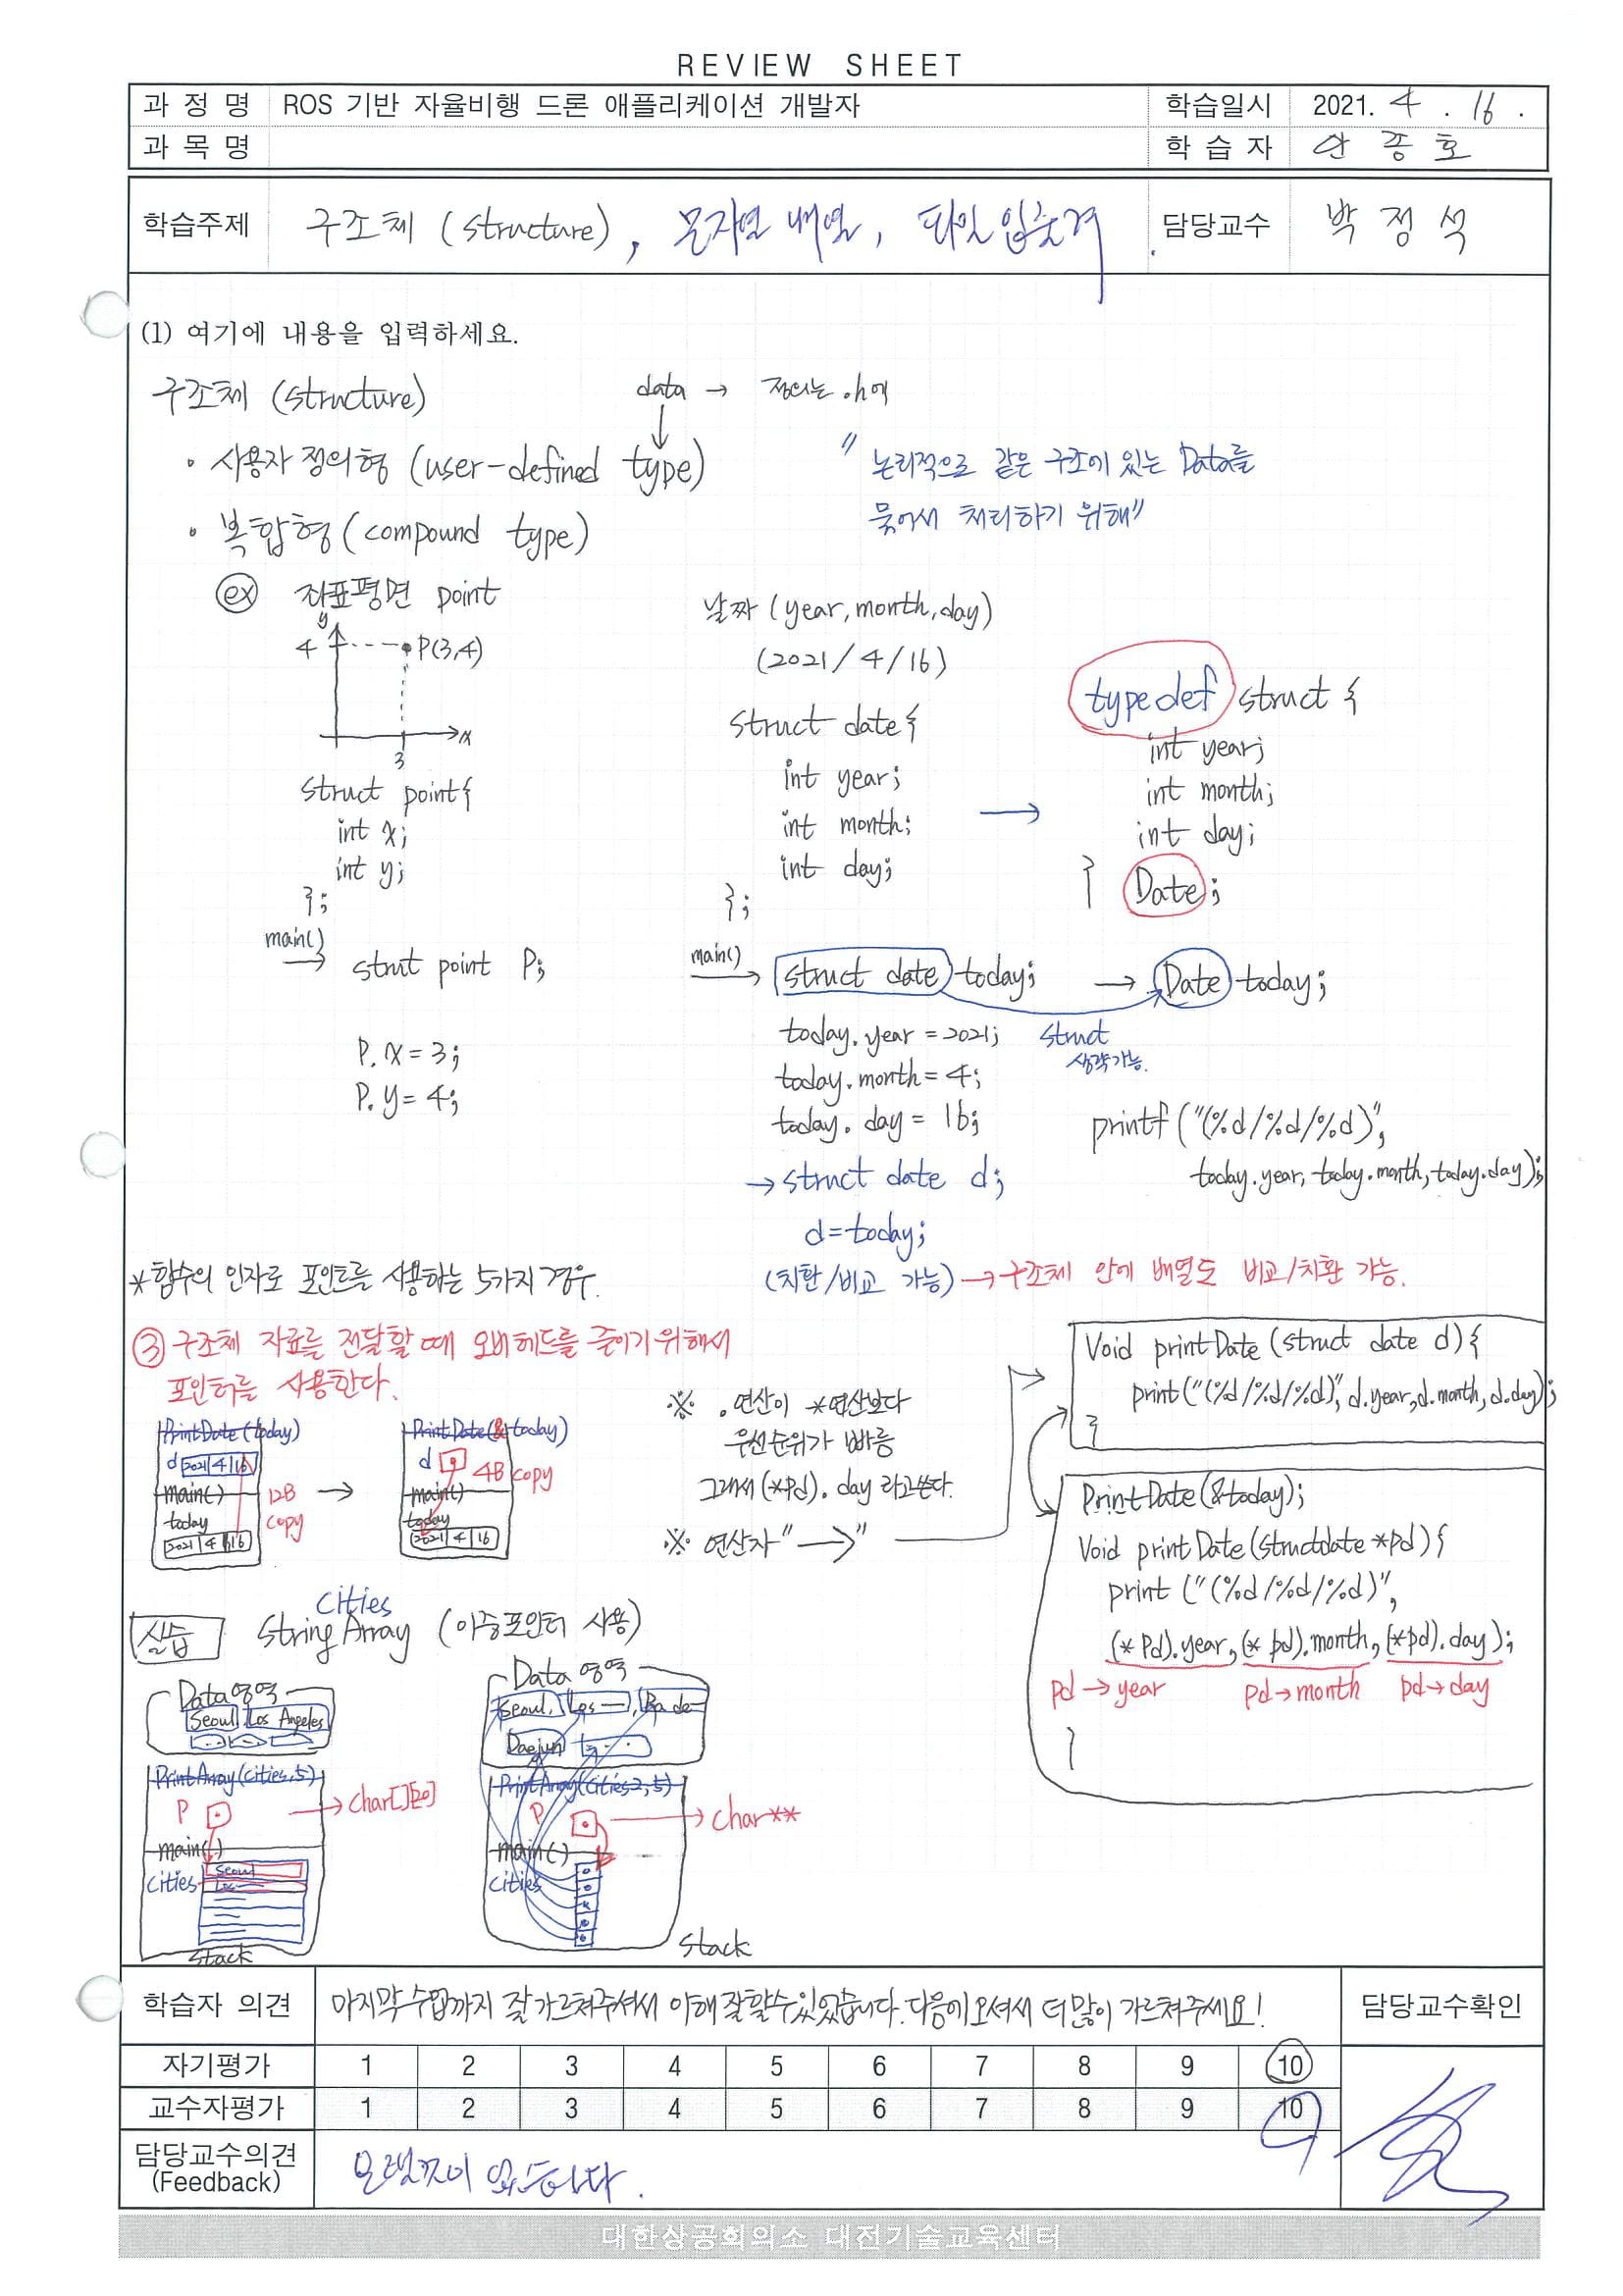 REVIEW SHEET
과 정 명 ROS 기반 자율비행 드론 애플리케이션 개발자 학습일시 2021. 4 . 16 .
과 목 명 학 습 자 안 종 호
학습주제 구조체 (structure), 문자열 배열, 파일 입출력 담당교수 박 정 석
(1) 여기에 내용을 입력하세요.
구조체 (structure) data → 정의는 .h에
• 사용자 정의형 (user-defined type)
• 복합형 (compound type)
"논리적으로 같은 구조에 있는 Data를
묶어서 처리하기 위해"
ex 좌표평면 point
y
4 P(3,4)
x
3
struct point{
int x;
int y;
};
main()
→ strut point P;
P.x = 3;
P.y = 4;
날짜 (year, month, day)
(2021/4/16)
struct date{
int year;
int month;
int day;
};
→
typedef struct {
int year;
int month;
int day;
} Date;
main()
→ struct date today; → Date today;
struct
생략가능.
today.year = 2021;
today.month = 4;
today.day = 16;
→ struct date d;
d = today;
(치환/비교 가능) → 구조체 안에 배열도 비교/치환 가능.
printf ("(%d/%d/%d)",
today.year, today.month, today.day);
*함수의 인자로 포인트를 사용하는 5가지 경우.
③ 구조체 자료를 전달할 때 오버헤드를 줄이기 위해서
포인터를 사용한다.
PrintDate(today)
d 2021 4 16
main()
today
2021 4 16
12B
copy
→
PrintDate(&today)
d
4B copy
main()
today
2021 4 16
※ .연산이 *연산보다
우선순위가 빠름
그래서 (*pd).day 라고쓴다.
※ 연산자 "→"
Void printDate (struct date d){
print("(%d/%d/%d)", d.year, d.month, d.day);
}
PrintDate(&today);
Void printDate(structdate *pd){
print ("(%d/%d/%d)",
(*pd).year, (*pd).month, (*pd).day);
pd→year pd→month pd→day
}
실습 cities
String Array (이중포인터 사용)
Data영역
Seoul Los Angeles
PrintArray(cities,5)
P → char[][20]
main()
cities Seoul
Los
Stack
Data 영역
Seoul, Los
Daejun
PrintArray(cities2,5)
P → char**
main()
cities
Stack
학습자 의견 마지막 수업까지 잘 가르쳐주셔서 이해 잘할수있었습니다. 다음에 오셔서 더 많이 가르쳐주세요! 담당교수확인
자기평가 1 2 3 4 5 6 7 8 9 10
교수자평가 1 2 3 4 5 6 7 8 9 10
담당교수의견
(Feedback)
대한상공회의소 대전기술교육센터